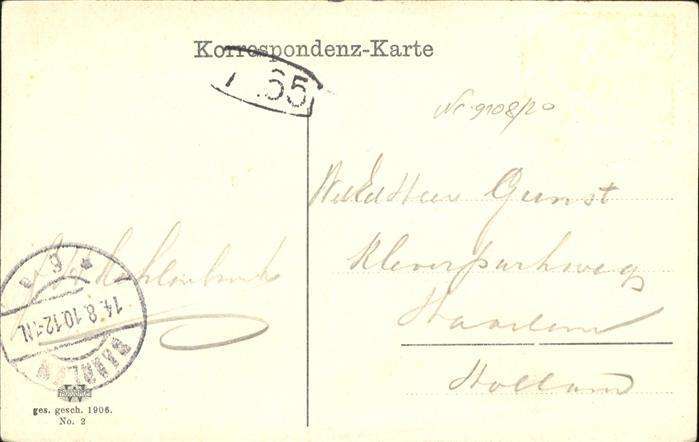 Korrespondenz-Karte
65
Nr. 9108/20
WelEd Heer Gunst
Kleverparkweg
Haarlem
Holland
14.8.10.12-1N.
HAARLEM
ges. gesch. 1906.
No. 2